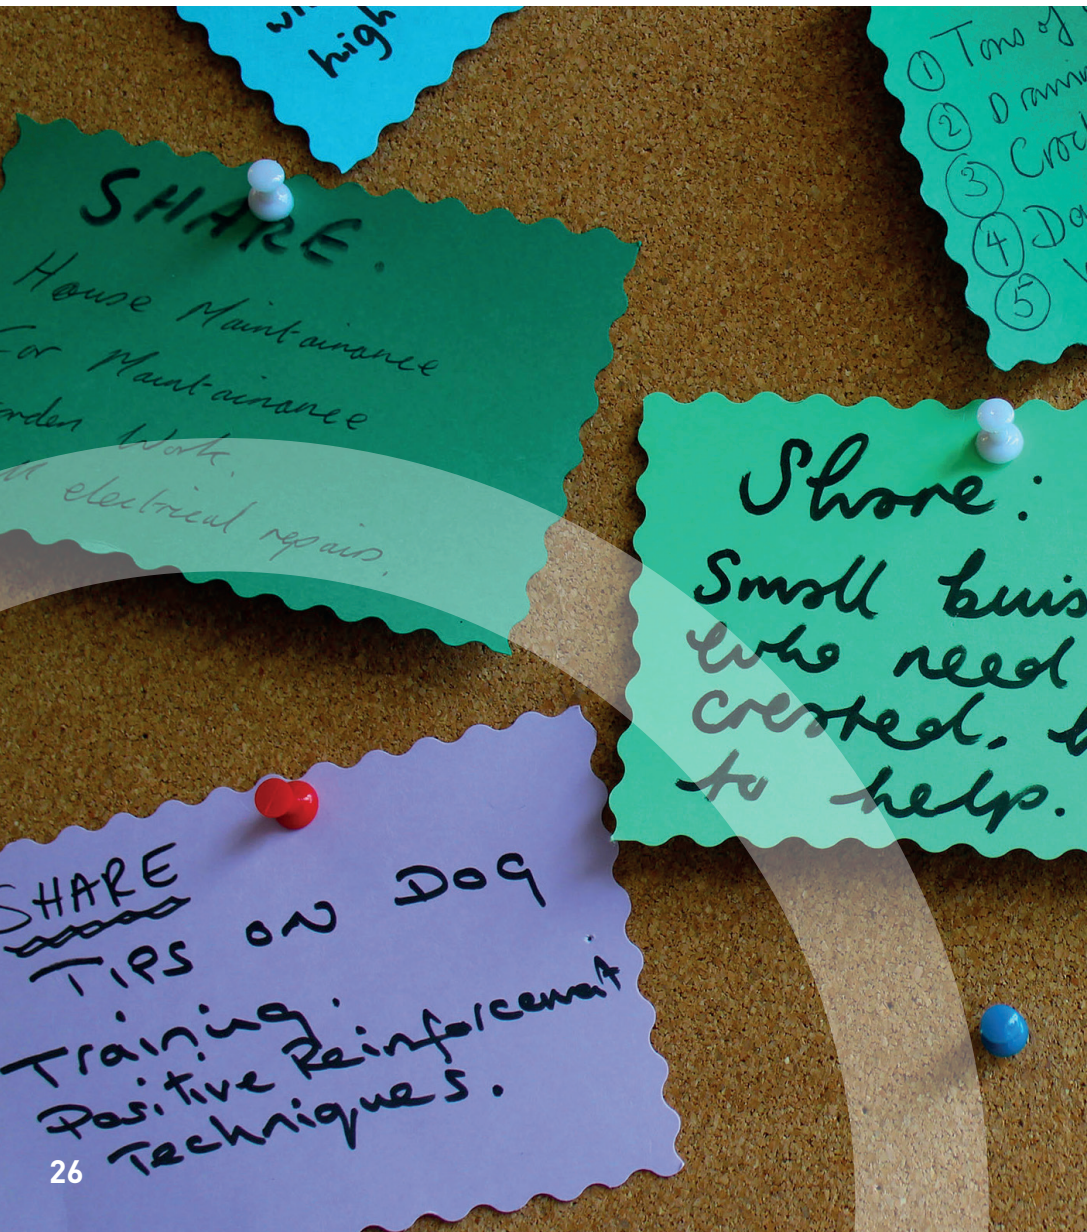 high
SHARE.
House Maintainance
Car Maintainance
Work.
electrical repairs.
① Tons of
②
③
④
⑤
Share:
Small buis
who need
created.
to help.
SHARE
TIPS ON DOG
Training.
Positive Reinforcement
Techniques.
26